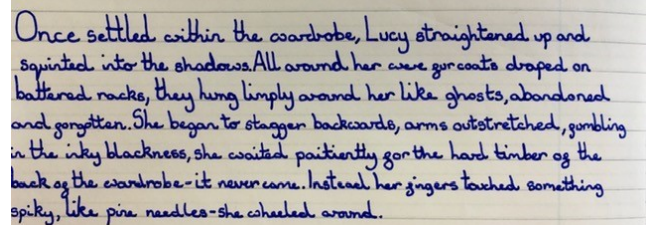 Once settled within the wardrobe, Lucy straightened up and
squinted into the shadows. All around her were fur coats draped on
battered racks, they hung limply around her like ghosts, abandoned
and forgotten. She began to stagger backwards, arms outstretched, fumbling
in the inky blackness, she waited paitiently for the hard timber of the
back of the wardrobe - it never came. Instead her fingers touched something
spiky, like pine needles - she wheeled around.